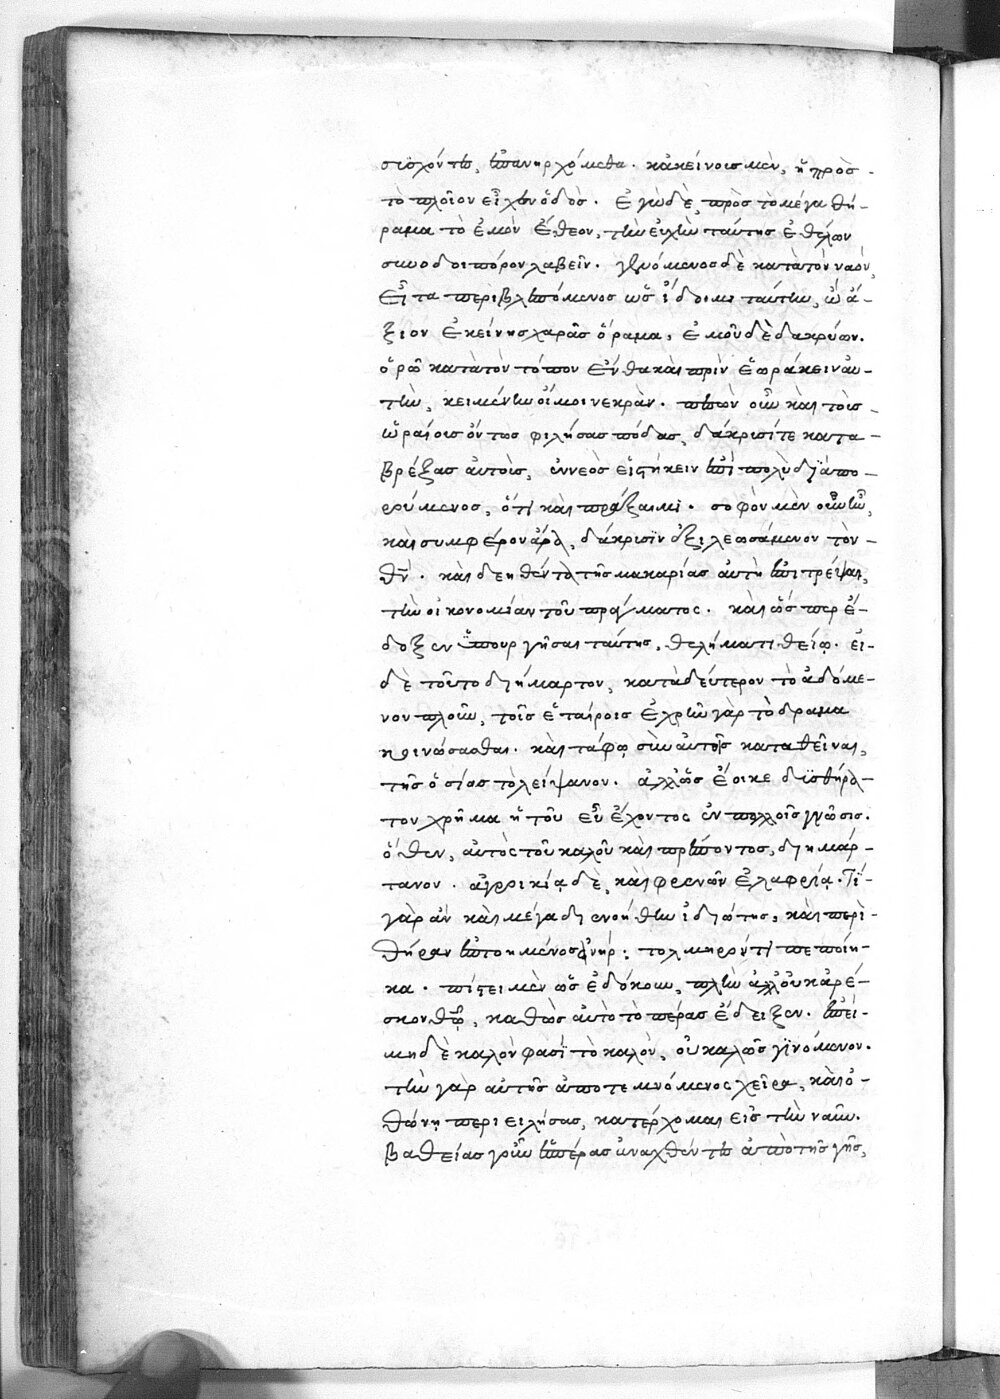 σισχόντες, ἐπανηρχόμεθα. κἀκείνοις μὲν, ἡ πρὸς
τὸ πλοῖον εἶχεν ὁδός. Ἐγὼ δὲ, πρὸς τὸ μέγα θή-
ραμα τὸ ἐμὸν ἔθεον, τὴν εὐχὴν ταύτης ἐθέλων
συνοδοιπόρον λαβεῖν. γενόμενος δὲ κατὰ τὸν ναόν,
Εἶτα περιβλεπόμενος ὡς ἴδοιμι ταύτην, ὢ ἄ-
ξιον ἐκείνης χαρᾶς ὅραμα, ἐμοῦ δὲ δακρύων.
ὁρῶ κατὰ τὸν τόπον ἔνθα καὶ πρὶν ἑωράκειν αὐ-
τὴν, κειμένην οἴμοι νεκράν. πεσὼν οὖν καὶ τοῖς
ὡραίοις ὄντως φιλήσας πόδας, δάκρυσί τε κατα-
βρέξας αὐτοῖς, ἐννεὸς εἱστήκειν ἐπὶ πολὺ διαπο-
ρούμενος, ὅτι καὶ πράξαιμι. σοφὸν μὲν οὖν ἦν,
καὶ συμφέρον ἄρα, δάκρυσιν ἐξιλεωσάμενον τὸν
θν̅. καὶ δεηθέντα τῆς μακαρίας αὐτῇ ἐπιτρέψαι,
τὴν οἰκονομίαν τοῦ πράγματος. καὶ ὥσπερ ἔ-
δοξεν ὑπουργῆσαι ταύτης, θελήματι θείῳ. εἰ
δὲ τοῦτο διήμαρτον, κατὰ δεύτερον τὸ ἀδόμε-
νον πλοῦν, τοῖς ἑταίροις ἐχρῆν γὰρ τὸ δραμα
κοινώσασθαι. καὶ τάφῳ σὺν αὐτοῖς καταθεῖναι,
τῆς ὁσίας τὸ λείψανον. ἀλλ' ὡς ἔοικε δυσθήρα-
τον χρῆμα ἡ τοῦ εὖ ἔχοντος ἐν πολλοῖς γνῶσις.
ὅθεν, αὐτὸς τοῦ καλοῦ καὶ πρέποντος, διημάρ-
τανον. ἀγροικίᾳ δὲ, καὶ φρενῶν ἐλαφρίᾳ. Τί
γὰρ ἂν καὶ μέγα διενοήθην ἰδιώτης, καὶ περὶ
θήραν ἐπτοημένος ἀνήρ; τολμηρόν τι πεποίη-
κα. πίστει μὲν ὡς ἐδόκουν, πλὴν ἀλλ' οὐκ ἀρέ-
σκον θῷ, καθὼς αὐτὸ τὸ πέρας ἔδειξεν. ἐπεὶ
μηδὲ καλὸν φασὶ τὸ καλὸν, οὐ καλῶς γινόμενον.
τὴν γὰρ αὐτῆς ἀποτεμνόμενος χεῖρα, καὶ ὀ-
θόνῃ περιειλήσας, κατέρχομαι εἰς τὴν ναῦν.
βαθείας γοῦν ἑσπέρας ἀναχθέντες ἀπὸ τῆς γῆς,